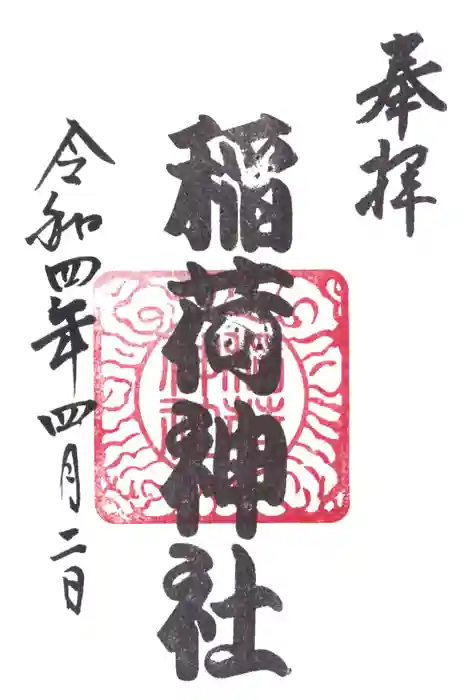 奉拝
稲荷神社
令和四年四月二日